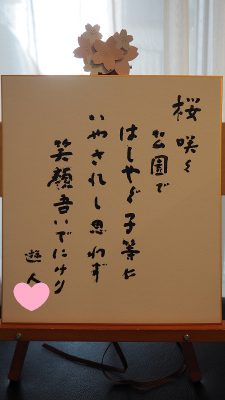 桜咲く
公園で
はしゃぐ子等に
いやされし思わず
笑顔吾いでにけり
遊